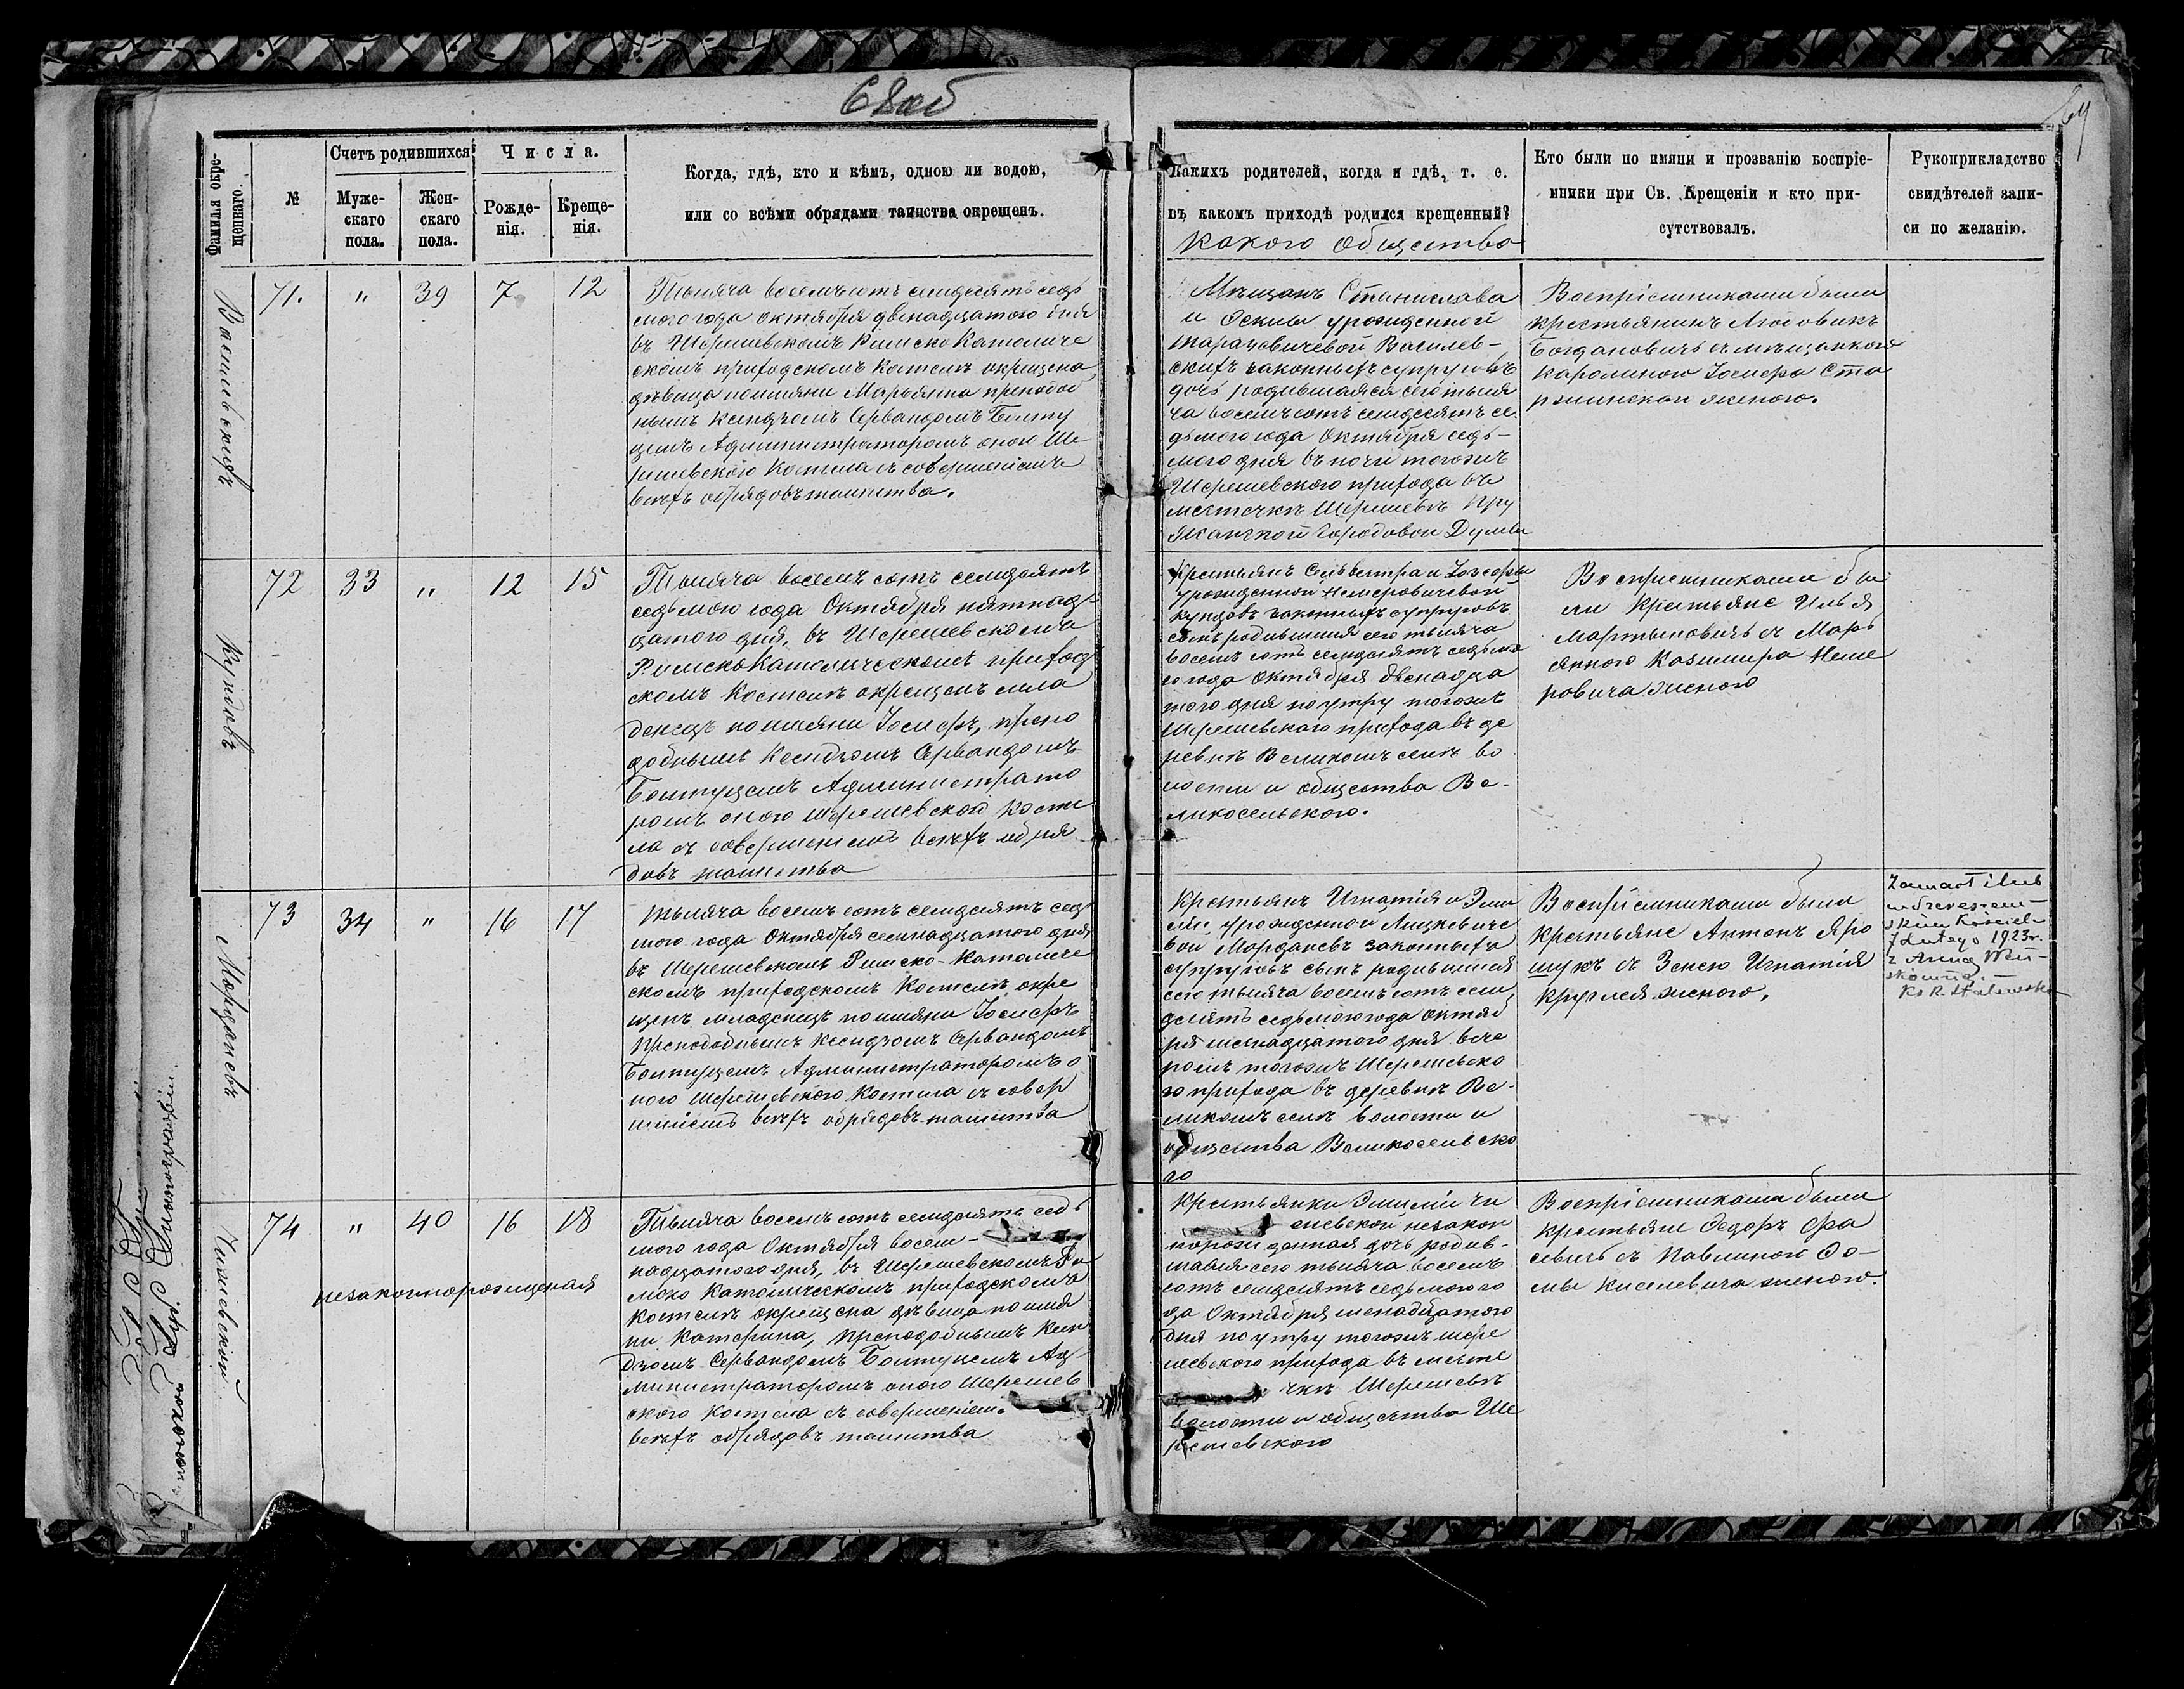 68об
69
Фамилія окрещеннаго.
№
Счетъ родившихся
Мужескаго пола.
Женскаго пола.
Числа.
Рожденія.
Крещенія.
Когда, гдѣ, кто и кѣмъ, одною ли водою,
или со всѣми обрядами таинства окрещенъ.
Какихъ родителей, когда и гдѣ, т. е.
въ какомъ приходѣ родился крещенный?
какого общества
Кто были по имяни и прозванію воспріе-
мники при Св. Крещеніи и кто при-
сутствовалъ.
Рукоприкладство
свидѣтелей запи-
си по желанію.
Василевскихъ
71.
"
39
7
12
Тысяча восемьсотъ семьдесятъ седь
мого года октября двенадцатого дня
въ Шерешевскомъ Римско Католиче
скомъ приходскомъ Костелѣ окрещена
дѣвица по имяни Марьянна преподоб
нымъ Ксендзомъ Сервандомъ Болту
цемъ Администраторомъ оного Ше
решевского Костела съ совершеніемъ
всѣхъ обрядовъ таинства.
Мѣщанъ Станислава
и урожденной
Тарасовичевой Василев-
скихъ законныхъ супруговъ
дочь родившаяся сего тыся
ча восемьсотъ семдесятъ се
дьмого года Октября седь-
мого дня въ ночи тогожъ
Шерешевского прихода въ
местечкѣ Шерешевѣ Пру
жанской Городовой Думы
Воспріемниками были
крестьянинъ Людовикъ
Богдановичъ съ мѣщанкою
Каролиною Іосифа Ста
женою.
Кундовъ
72
33
"
12
15
Тысяча восемъ сотъ семдсятъ
седьмого года Октября пятнад
цатого дня, въ Шерешевскомъ
Римско Католическомъ приход
скомъ Костелѣ окрещенъ мла
денецъ по имяни Іосифъ, препо
добнымъ Ксендзомъ Сервандомъ
Болтуцемъ Администрато
ромъ оного Шерешевской Косте
ла съ совершеніемъ всѣхъ обря
довъ таинства
Крестьянъ Сильвестра и Іозефы
урожденной Немеровичевой
Кундовъ законныхъ супруговъ
сынъ родившійся сего тысяча
восемъ сотъ семдсятъ седьмо
го года Октября двенадца
того дня по утру тогожъ
Шерешевского прихода въ де
ревнѣ Великомъ селѣ во
лости и общества Ве-
ликосельского.
Воспріемниками бы
ли Крестьяне Илья
Мартыновичъ съ Марь
янною Казимира Неме
ровича женою
Морданевъ
73
34
"
16
17
Тысяча восемъ сотъ семдсятъ седь
мого года Октября семнадцатого дня
въ Шерешевскомъ Римско-Католиче
скомъ приходскомъ Костелѣ окре
щенъ младенецъ по имяни Іосифъ
Преподобнымъ Ксендзомъ Сервандомъ
Болтуцемъ Администраторомъ о
ного Шерешевского Костела съ совер
шеніемъ всѣхъ обрядовъ таинства
Крестьянъ Игнатія и Эми
ліи урожденной Лицкевиче
вой Морданевъ законныхъ
супруговъ сынъ родившійся
сего тысяча восемъ сотъ сем
десятъ седьмого года Октяб
ря шеснадцатого дня вече
ромъ тогожъ Шерешевско
го прихода въ деревнѣ Ве-
ликомъ селѣ волости и
общества Великосельско
го
Воспріемниками были
Крестьяне Антонъ Яро
шукъ съ Игнатія
женою.
Zawarł ślub
w Szereszew-
skim Kościele
7 Lutego 1923r.
z Anną
Ks R.
74
"
40
16
18
незаконнорожденная
Тысяча восемъ сотъ семдсятъ седь
мого года Октября восем-
надцатого дня, въ Шерешевскомъ Ри
мско Католическомъ приходскомъ
Костелѣ окрещена дѣвица по имя
ни Катерина, преподобнымъ Ксен
дзомъ Сервандомъ Болтуцемъ Ад
министраторомъ оного Шерешев
ского Костела съ совершеніем.
всѣхъ обрядовъ таинства
Крестьянки Эмиліи Чи
жевской незакон
норожденная дочь родив-
шаяся сего тысяча восемъ
сотъ семдсятъ седьмого го
да Октября шеснадцатого
дня по утру тогожъ шере
шевского прихода въ месте
чкѣ Шерешевѣ
волости и общества Ше
решевского
Воспріемниками были
крестьяне Федоръ
съ Павлиною Фо-
мы Киселевича женою.